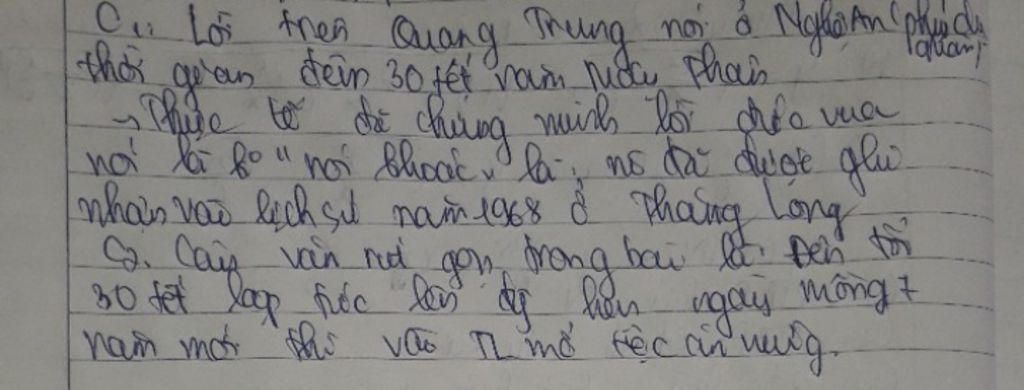 C1: Lời trên Quang Trung nói ở Nghệ An (phủ dụ quân)
thời gian đêm 30 tết năm
→ Thực tế đã chứng minh lời vua
nói là k° " nói khoác " là, nó đã được ghi
nhận vào lịch sử năm 1968 ở Thăng Long
C2. Câu văn rút gọn trong bài là: Đến tối
30 tết lập tức lên đg hẹn ngày mồng 7
năm mới thì vào TL mở tiệc ăn mừng.